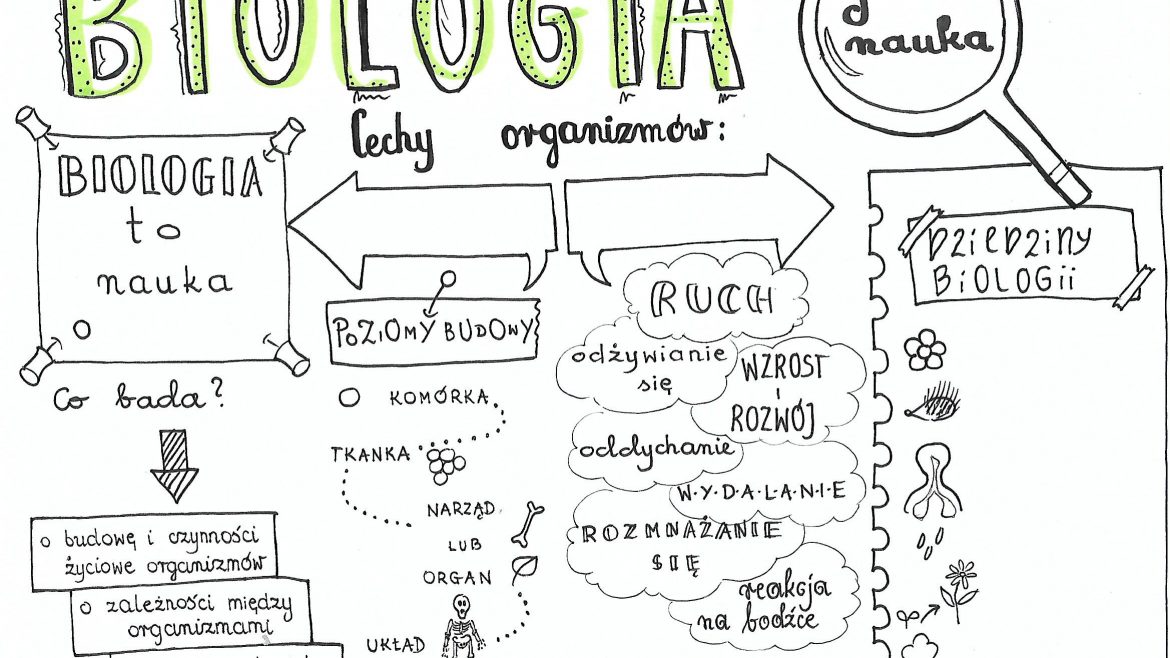 BIOLOGIA
nauka
Cechy organizmów:
BIOLOGIA
to
nauka
Co bada?
o budowę i czynności
życiowe organizmów
o zależności między
organizmami
POZIOMY BUDOWY
KOMÓRKA
TKANKA
NARZĄD
LUB
ORGAN
UKŁAD
RUCH
odżywianie
się
WZROST
i
ROZWÓJ
oddychanie
W·Y·D·A·L·A·N·I·E
ROZMNAŻANIE
SIĘ
reakcja
na bodźce
DZIEDZINY
BIOLOGII